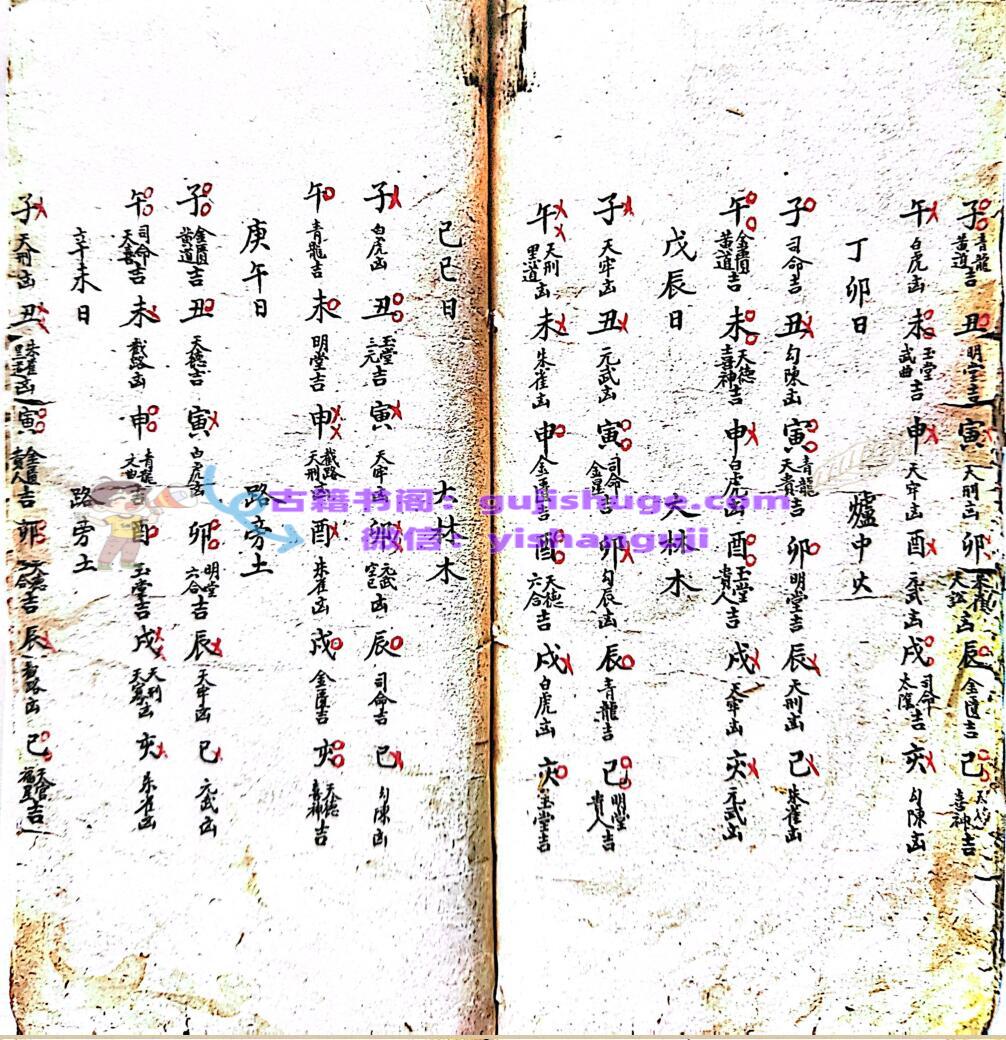 子 青龍黃道吉 丑 明堂吉 寅 天刑凶 卯 朱雀天訟凶 辰 金匱吉 巳 喜神吉
午 白虎凶 未 玉堂武曲吉 申 天牢凶 酉 元武凶 戌 司命太陰吉 亥 勾陳凶
丁卯日 爐中火
子 司命吉 丑 勾陳凶 寅 青龍天貴吉 卯 明堂吉 辰 天刑凶 巳 朱雀凶
午 金匱黃道吉 未 天德喜神吉 申 白虎凶 酉 玉堂貴人吉 戌 天牢凶 亥 元武凶
戊辰日 大林木
子 天牢凶 丑 元武凶 寅 司命金星吉 卯 勾辰凶 辰 青龍吉 巳 明堂貴人吉
午 天刑黑道凶 未 朱雀凶 申 金匱吉 酉 天德六合吉 戌 白虎凶 亥 玉堂吉
己巳日 大林木
子 白虎凶 丑 玉堂三元吉 寅 天牢凶 卯 元武空亡凶 辰 司命吉 巳 勾陳凶
午 青龍吉 未 明堂吉 申 截路天刑凶 酉 朱雀凶 戌 金匱吉 亥 天德喜神吉
庚午日 路旁土
子 金匱黃道吉 丑 天德吉 寅 白虎凶 卯 明堂六合吉 辰 天牢凶 巳 元武凶
午 司命天喜吉 未 截路凶 申 青龍文曲吉 酉 玉堂吉 戌 天刑凶 亥 朱雀凶
辛未日 路旁土
子 天刑凶 丑 朱雀凶 寅 金匱貴人吉 卯 天德吉 辰 截路凶 巳 天官福星吉
古籍书阁：gujishuge.com
微信：yishanguji